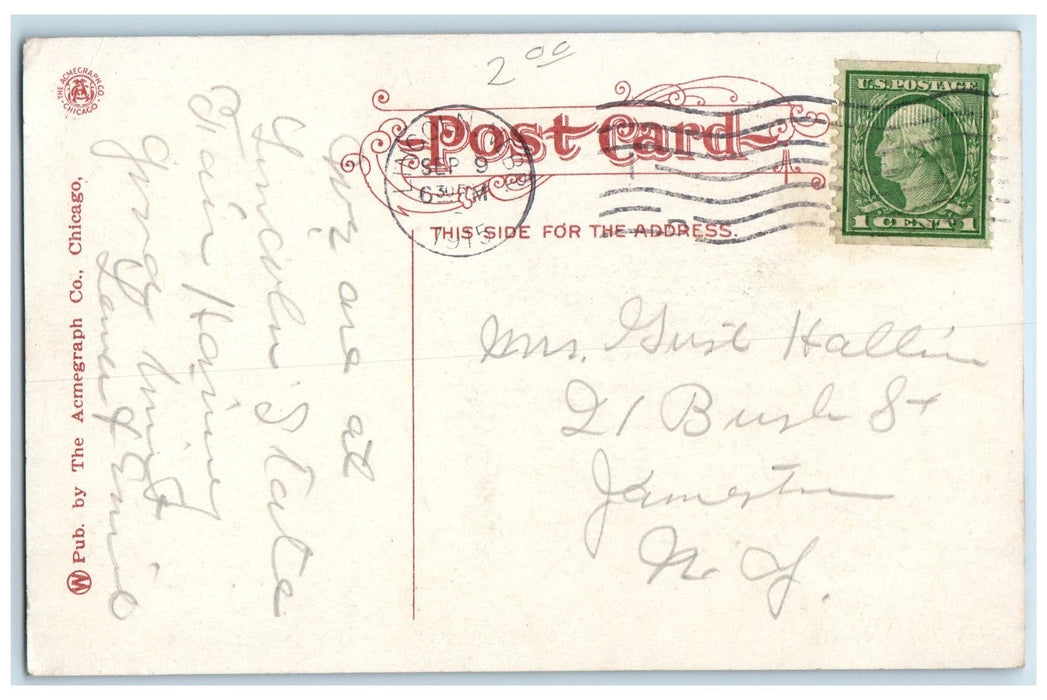 THE ACMEGRAPH CO.
CHICAGO
2 00
Post Card
THIS SIDE FOR THE ADDRESS.
SEP 9
6 30 PM
1915
U.S. POSTAGE
1 CENT 1
We are at
Lincoln State
Fair Having
Mrs. Gust Hallin
21 Bush St
Jamestn
N. Y.
W Pub. by The Acmegraph Co., Chicago,